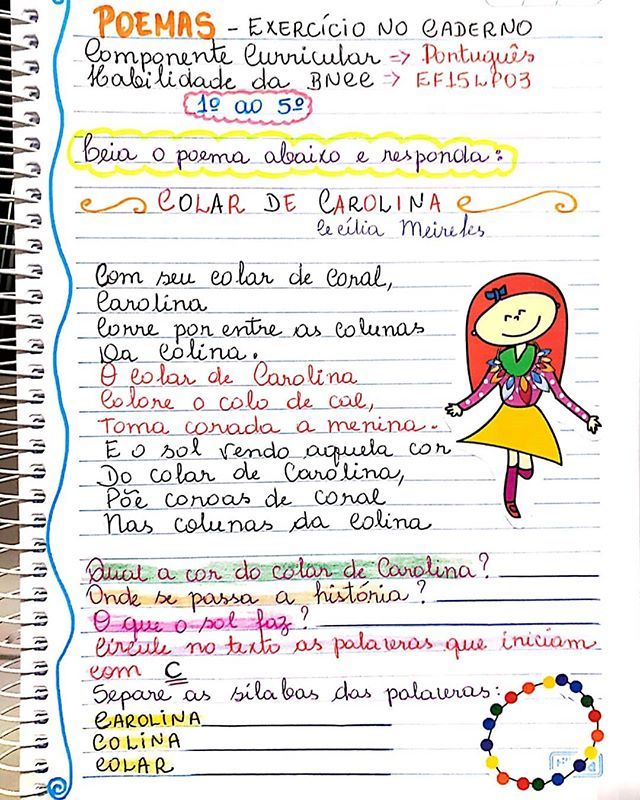 POEMAS - EXERCÍCIO NO CADERNO
Componente Curricular => Português
Habilidade da BNCC => EF15LP03
1º ao 5º
Leia o poema abaixo e responda:
COLAR DE CAROLINA
Cecília Meireles
Com seu colar de coral,
Carolina
Corre por entre as colunas
Da colina.
O colar de Carolina
Colore o colo de cal,
Torna corada a menina.
E o sol vendo aquela cor
Do colar de Carolina,
Põe coroas de coral
Nas colunas da colina
Qual a cor do colar de Carolina?
Onde se passa a história?
O que o sol faz?
Circule no texto as palavras que iniciam
com C
Separe as sílabas das palavras:
CAROLINA
COLINA
COLAR